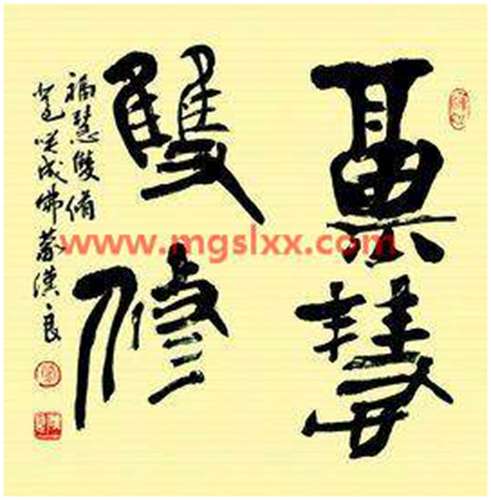 福慧
雙修
福慧雙修
成佛漢良
www.mgslxx.com